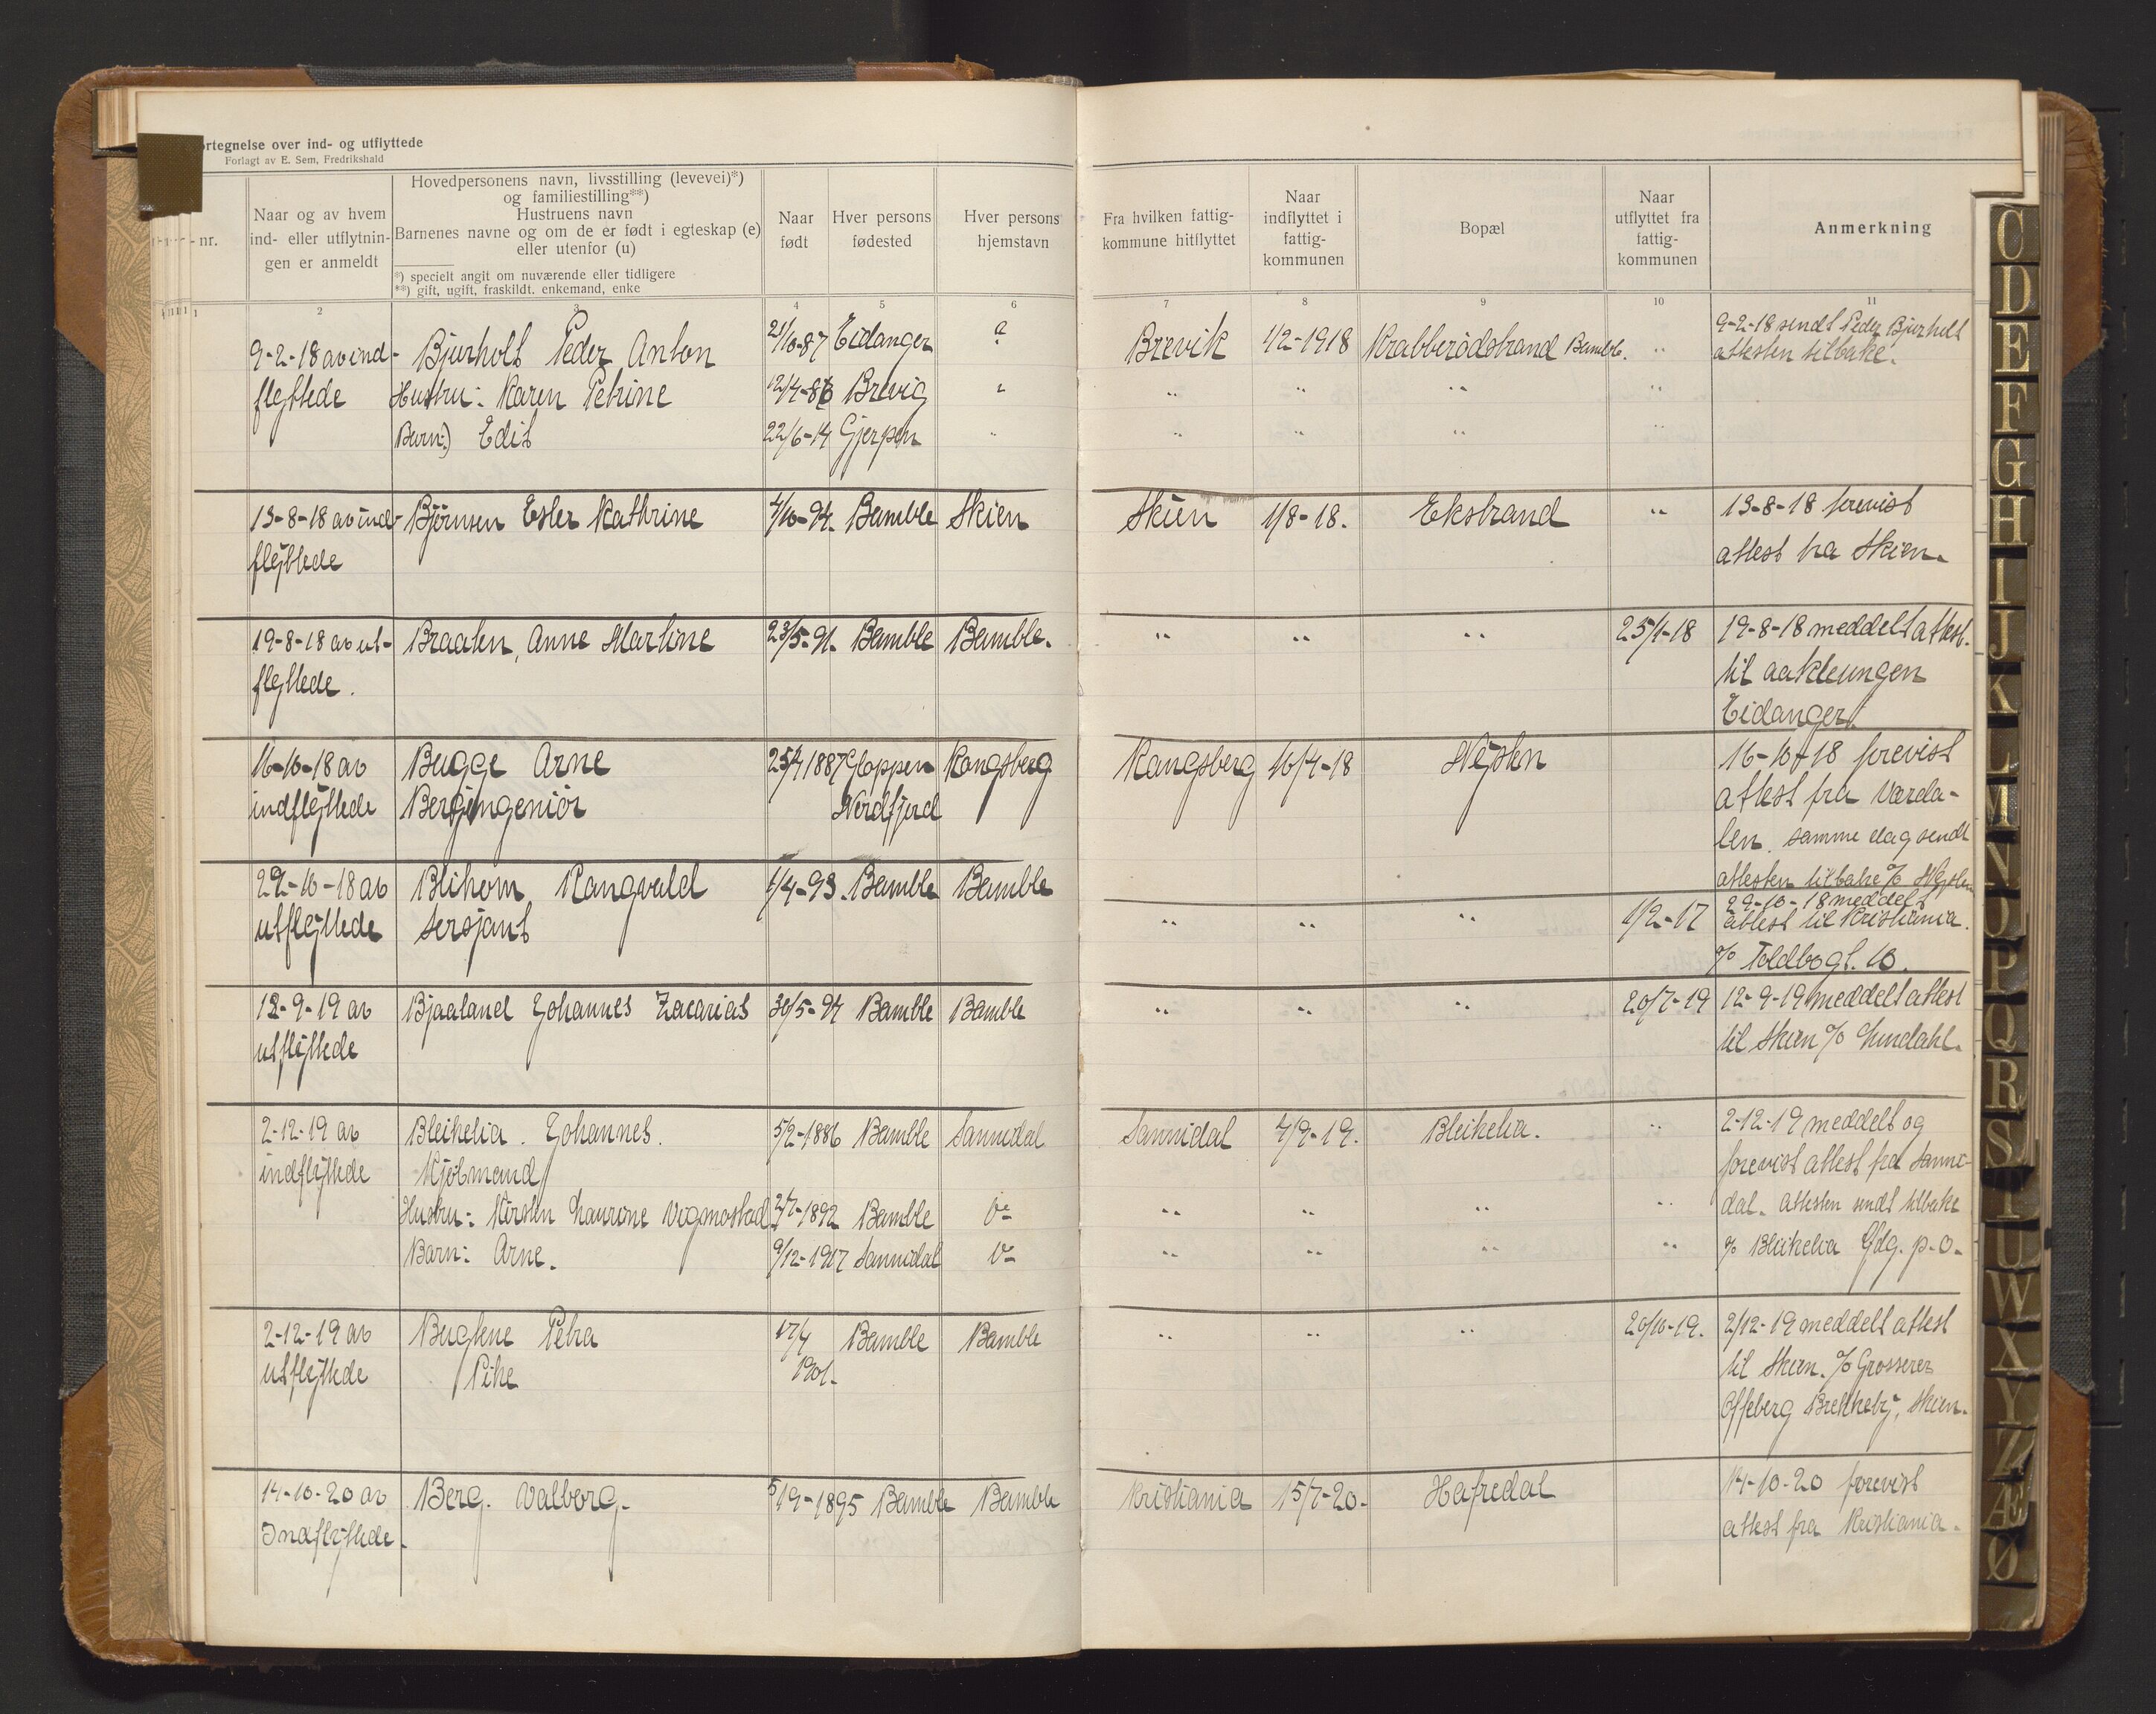 ortegnelse over ind- og utflyttede
Forlagt av E. Sem, Fredrikshald
nr.
Naar og av hvem
ind- eller utflytnin-
gen er anmeldt
Hovedpersonens navn, livsstilling (levevei)*)
og familiestilling**)
Hustruens navn
Barnenes navne og om de er født i egteskap (e)
eller utenfor (u)
*) specielt angit om nuværende eller tidligere
**) gift, ugift, fraskildt. enkemand, enke
Naar
født
Hver persons
fødested
Hver persons
hjemstavn
Fra hvilken fattig-
kommune hitflyttet
Naar
indflyttet i
fattig-
kommunen
Bopæl
Naar
utflyttet fra
fattig-
kommunen
Anmerkning
1 2 3 4 5 6 7 8 9 10 11
9-2-18 av ind- Bjurholt Peder Anton 21/10-87 Eidanger ? Brevik 1/2-1918 Krabberødstrand Bamble. " 9-2-18 sendt Peder Bjurholt
flyttede Hustru: Karen Petrine 12/4-86 Brevig " " " " " attesten tilbake.
Barn:) Edit 22/6-14 Gjerpen " " " " "
13-8-18 av ind- Bjørnsen Ester Kathrine 4/10-94. Bamble Skien Skien 1/8-18. Ekstrand " 13-8-18 forevist
flyttede attest fra Skien.
19-8-18 av ut- Braaten, Anne Martine 23/5-91. Bamble Bamble. " " " 25/1-18 19-8-18 meddelt attest.
flyttede. til aakleungen
Eidanger.
16-10-18 av Bugge Arne 25/7 1887 Gloppen Kongsberg Kongsberg 16/4-18 Nysten 16-10-18 forevist
indflyttede Bergingeniör Nordfjord attest fra Værda-
len. samme dag sendt
attesten tilbake % Nysten
29-10-18 av Blikom Rangvald 1/4-93. Bamble Bamble " " " 1/2-17 29-10-18 meddelt
utflyttede sersjant attest til Kristiania.
% Toldbogt. 10.
12-9-19 av Bjaaland Johannes Zacarias 30/5-94 Bamble Bamble " " " 20/7-19 12-9-19 meddelt attest
utflyttede til Skien % Lundahl.
2-12-19 av Bleikelia. Johannes. 5/2-1886 Bamble Sannidal Sannidal 4/9-19. Bleikelia. " 2-12-19 meddelt og
indflyttede Kjöbmand forevist attest fra Sanni-
Hustru: Kirsten Laurine Vigmostad 1892 Bamble " " " " dal. attesten sendt tilbake
Barn: Arne. 9/12-1917 Sannidal " " " " % Bleikelia p.o.
2-12-19 av Bugtene Petra 17/4 Bamble Bamble " " " 20/10-19. 2/12-19 meddelt attest
utflyttede Pike 1901. til Skien. % Grosserer
Offeberg Brekkeby, Skien.
14-10-20 av Berg. Valborg. 5/9-1895 Bamble Bamble Kristiania 15/7-20. Hafredal 14-10-20 forevist
Indflyttede. attest fra Kristiania.
C
D
E
F
G
H
I
J
K
L
M
N
O
P
Q
R
S
T
U
W
X
Y
Z
Æ
Ø